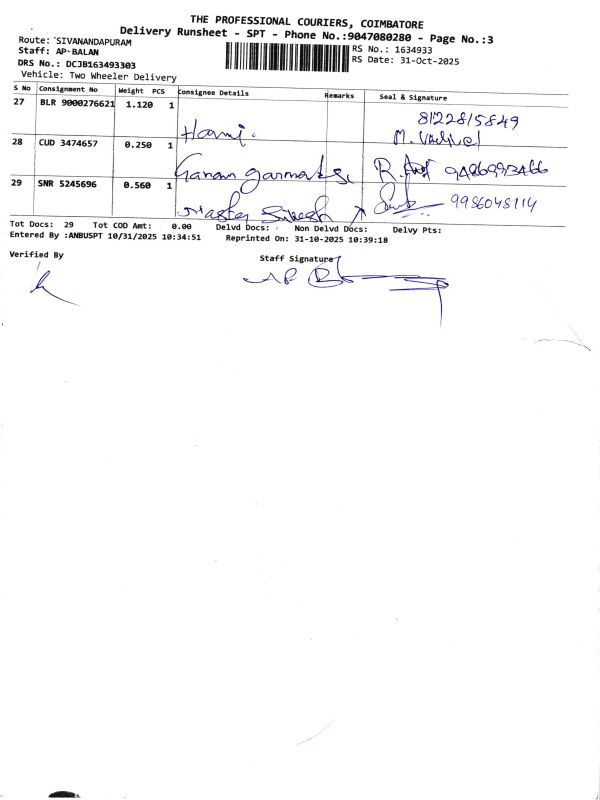 THE PROFESSIONAL COURIERS, COIMBATORE
Delivery Runsheet - SPT - Phone No.:9047080280 - Page No.:3
Route: SIVANANDAPURAM
RS No.: 1634933
Staff: AP-BALAN
RS Date: 31-Oct-2025
DRS No.: DCJB163493303
Vehicle: Two Wheeler Delivery
S No Consignment No Weight PCS Consignee Details Remarks Seal & Signature
27 BLR 9000276621 1.120 1
8122815849
28 CUD 3474657 0.250 1
29 SNR 5245696 0.560 1
9986048114
Tot Docs: 29 Tot COD Amt: 0.00 Delvd Docs: Non Delvd Docs: Delvy Pts:
Entered By :ANBUSPT 10/31/2025 10:34:51 Reprinted On: 31-10-2025 10:39:18
Verified By
Staff Signature